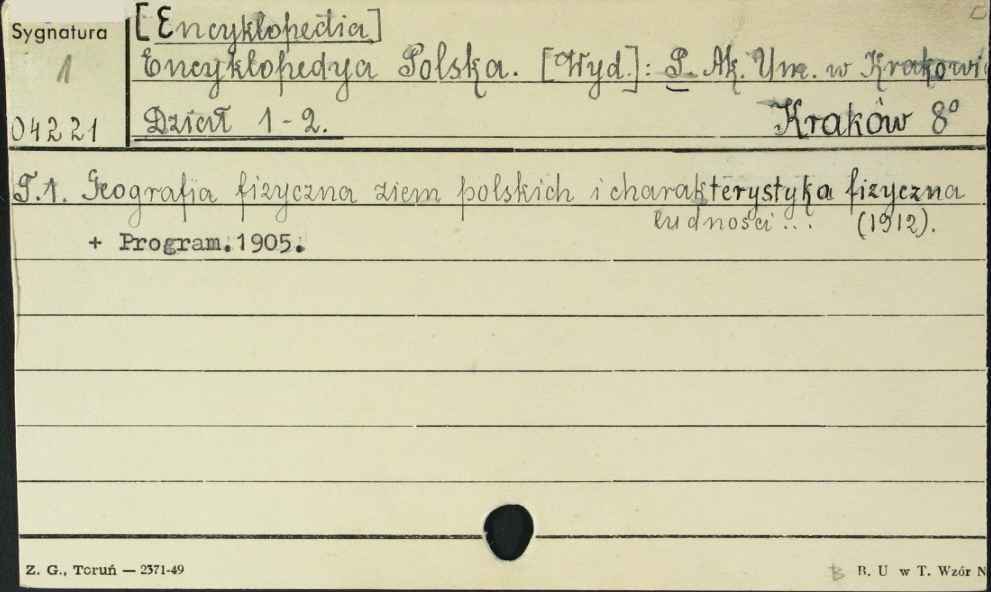 Sygnatura
1
04221
[Encyklopedia]
Encyklopedya Polska. [Wyd.]: P. Ak. Um. w Krakowi
Dział 1-2. Kraków 8°
T.1. Geografia fizyczna ziem polskich i charakterystyka fizyczna
ludności ... (1912).
+ Program. 1905.
Z. G., Toruń — 2371-49
B. U w T. Wzór N